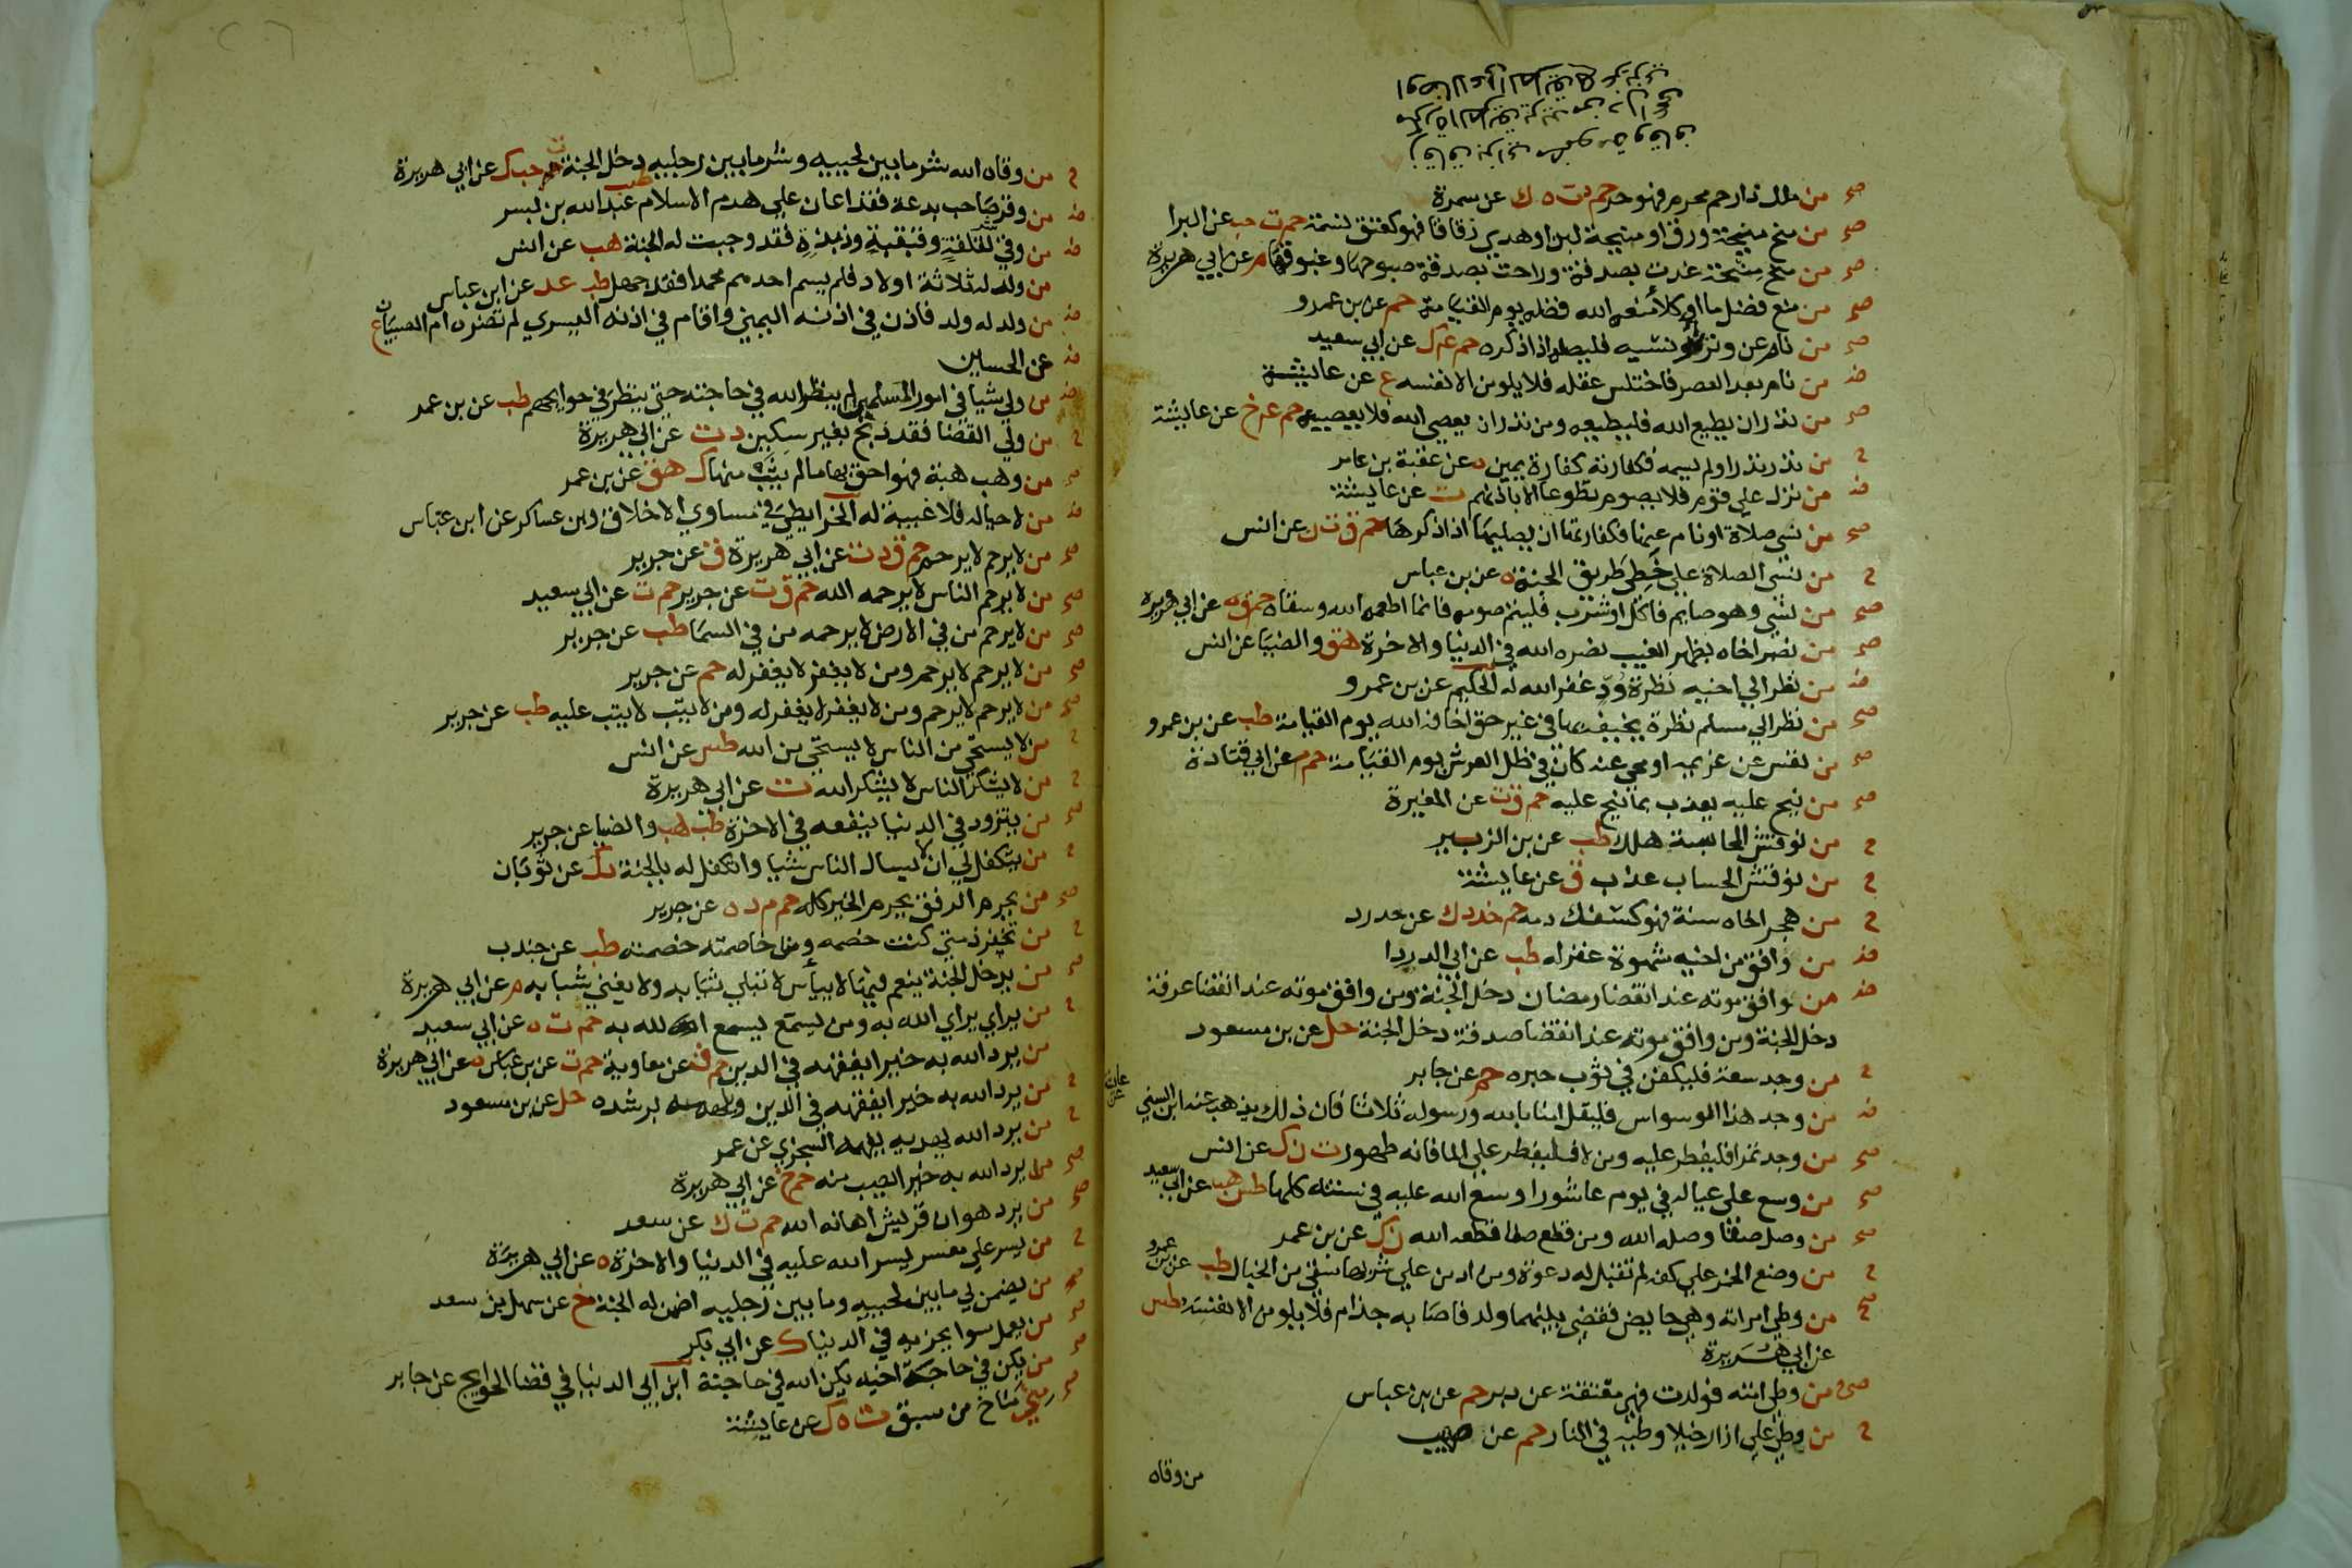 صح من ملك ذا رحم محرم فهو حر حم د ت ه ك عن سمرة
صح من منح منيحة ورق او منيحة لبن او هدي زقاقا فهو كعتق نسمة حم ت حب عن البرا
صح من منح منيحة غدت بصدقة وراحت بصدقة صبوحها وغبوقها م عن ابي هريرة
صح من منع فضل ما او كلأ منعه الله فضله يوم القيامة حم عن بن عمرو
صح من نام عن وتره او نسيه فليصله اذا ذكره حم ع ك عن ابي سعيد
ض من نام بعد العصر فاختلس عقله فلا يلومن الا نفسه ع عن عايشة
صح من نذر ان يطيع الله فليطيعه ومن نذر ان يعصي الله فلا يعصيه حم ع خ عن عايشة
ح من نذر نذرا ولم يسمه فكفارته كفارة يمين ه عن عقبة بن عامر
ض من نزل علي قوم فلا يصوم تطوعا الا باذنهم ت عن عايشة
صح من نسي صلاة او نام عنها فكفارتها ان يصليها اذا ذكرها حم ق ت ن عن انس
ح من نسي الصلاة علي خطي طريق الجنة ه عن بن عباس
صح من نسي وهو صايم فاكل او شرب فليتم صومه فانما اطعمه الله وسقاه حم ق ه عن ابي هريرة
صح من نصر اخاه بظهر الغيب نصره الله في الدنيا والاخرة هق والضيا عن انس
ض من نظر الي اخيه نظرة ود غفر الله له الحكيم عن بن عمرو
صح من نظر الي مسلم نظرة يخيفه بها في غير حق اخافه الله يوم القيامة طب عن بن عمرو
صح من نفس عن غريمه او محي عنه كان في ظل العرش يوم القيامة حم م عن ابي قتادة
صح من نيح عليه يعذب بما نيح عليه حم ق ت عن المغيرة
ح من نوقش المحاسبة هلك طب عن بن الزبير
ح من نوقش الحساب عذب ق عن عايشة
ح من هجر اخاه سنة فهو كسفك دمه حم خد د ك عن حدرد
ض من وافق من اخيه شهوة غفر له طب عن ابي الدردا
ض من وافق موته عند انقضا رمضان دخل الجنة ومن وافق موته عند انقضا عرفة
دخل الجنة ومن وافق موته عند انقضا صدقة دخل الجنة حل عن بن مسعود
ح من وجد سعة فليكفن في ثوب حبره حم عن جابر
ض من وجد هذا الوسواس فليقل امنا بالله ورسوله ثلاثا فان ذلك يذهب عنه ابن السني
صح من وجد تمرا فليفطر عليه ومن لا فليفطر علي الما فانه طهور ت ن ك عن انس
صح من وسع علي عياله في يوم عاشورا وسع الله عليه في سنته كلها طس هب عن ابي سعيد
صح من وصل صفا وصله الله ومن قطع صفا قطعه الله ن ك عن بن عمر
ح من وضع الخمر علي كفه لم تقبل له دعوة ومن ادمن علي شربها سقي من الخبال طب عن بن عمرو
صح من وطي امراته وهي حايض فقضي بينهما ولد فاصابه جذام فلا يلومن الا نفسه طس
عن ابي هريرة
صح من وطي امته فولدت فهي معتقة عن دبر حم عن بن عباس
ح من وطي علي ازار خيلا وطيه في النار حم عن صهيب
من وقاه
ح من وقاه الله شر ما بين لحييه وشر ما بين رجليه دخل الجنة ت حب ك عن ابي هريرة
ض من وقر صاحب بدعة فقد اعان علي هدم الاسلام طب عبد الله بن بسر
ض من وقي شر لقلقه وقبقبه وذبذبه فقد وجبت له الجنة هب عن انس
من ولد له ثلاثة اولاد فلم يسم احدهم محمدا فقد جهل طب عد عن ابن عباس
ض من ولد له ولد فاذن في اذنه اليمني واقام في اذنه اليسري لم تضره ام الصبيان ع
عن الحسين
ض من ولي شيا في امور المسلمين لم ينظر الله في حاجته حتي ينظر في حوايجهم طب عن بن عمر
ح من ولي القضا فقد ذبح بغير سكين د ت عن ابي هريرة
صح من وهب هبة فهو احق بها ما لم يثب منها ك هق عن بن عمر
ض من لا حيا له فلا غيبة له الخرايطي في مساوي الاخلاق وبن عساكر عن ابن عباس
صح من لا يرحم لا يرحم حم ق د ت عن ابي هريرة ق عن جرير
صح من لا يرحم الناس لا يرحمه الله حم ق ت عن جرير حم ت عن ابي سعيد
صح من لا يرحم من في الارض لا يرحمه من في السما طب عن جرير
صح من لا يرحم لا يرحم ومن لا يغفر لا يغفر له حم عن جرير
صح من لا يرحم لا يرحم ومن لا يغفر لا يغفر له ومن لا يتب لا يتب عليه طب عن جرير
ح من لا يستحي من الناس لا يستحي من الله طس عن انس
ح من لا يشكر الناس لا يشكر الله ت عن ابي هريرة
صح من يتزود في الدنيا ينفعه في الاخرة طب هب والضيا عن جرير
ح من يتكفل لي ان لا يسال الناس شيا واتكفل له بالجنة د ك عن ثوبان
صح من يحرم الرفق يحرم الخير كله حم م د ه عن جرير
ح من يخفر ذمتي كنت خصمه ومن خاصمته خصمته طب عن جندب
صح من يدخل الجنة ينعم فيها لا ييأس لا تبلي ثيابه ولا يفني شبابه م عن ابي هريرة
ح من يراي يراي الله به ومن يسمع يسمع الله به حم ت ه عن ابي سعيد
من يرد الله به خيرا يفقهه في الدين حم ق عن معاوية حم ت عن بن عباس ه عن ابي هريرة
ح من يرد الله به خيرا يفقهه في الدين ويلهمه رشده حل عن بن مسعود
ح من يرد الله يهديه يفهمه السجزي عن عمر
صح من يرد الله به خيرا يصب منه حم خ عن ابي هريرة
صح من يرد هوان قريش اهانه الله حم ت ك عن سعد
ح من يسر علي معسر يسر الله عليه في الدنيا والاخرة ه عن ابي هريرة
صح من يضمن لي ما بين لحييه وما بين رجليه اضمن له الجنة خ عن سهل بن سعد
صح من يعمل سوا يجز به في الدنيا ك عن ابي بكر
صح من يكن في حاجة اخيه يكن الله في حاجته ابن ابي الدنيا في قضا الحوايج عن جابر
صح مني مناخ من سبق ت ه ك عن عايشة